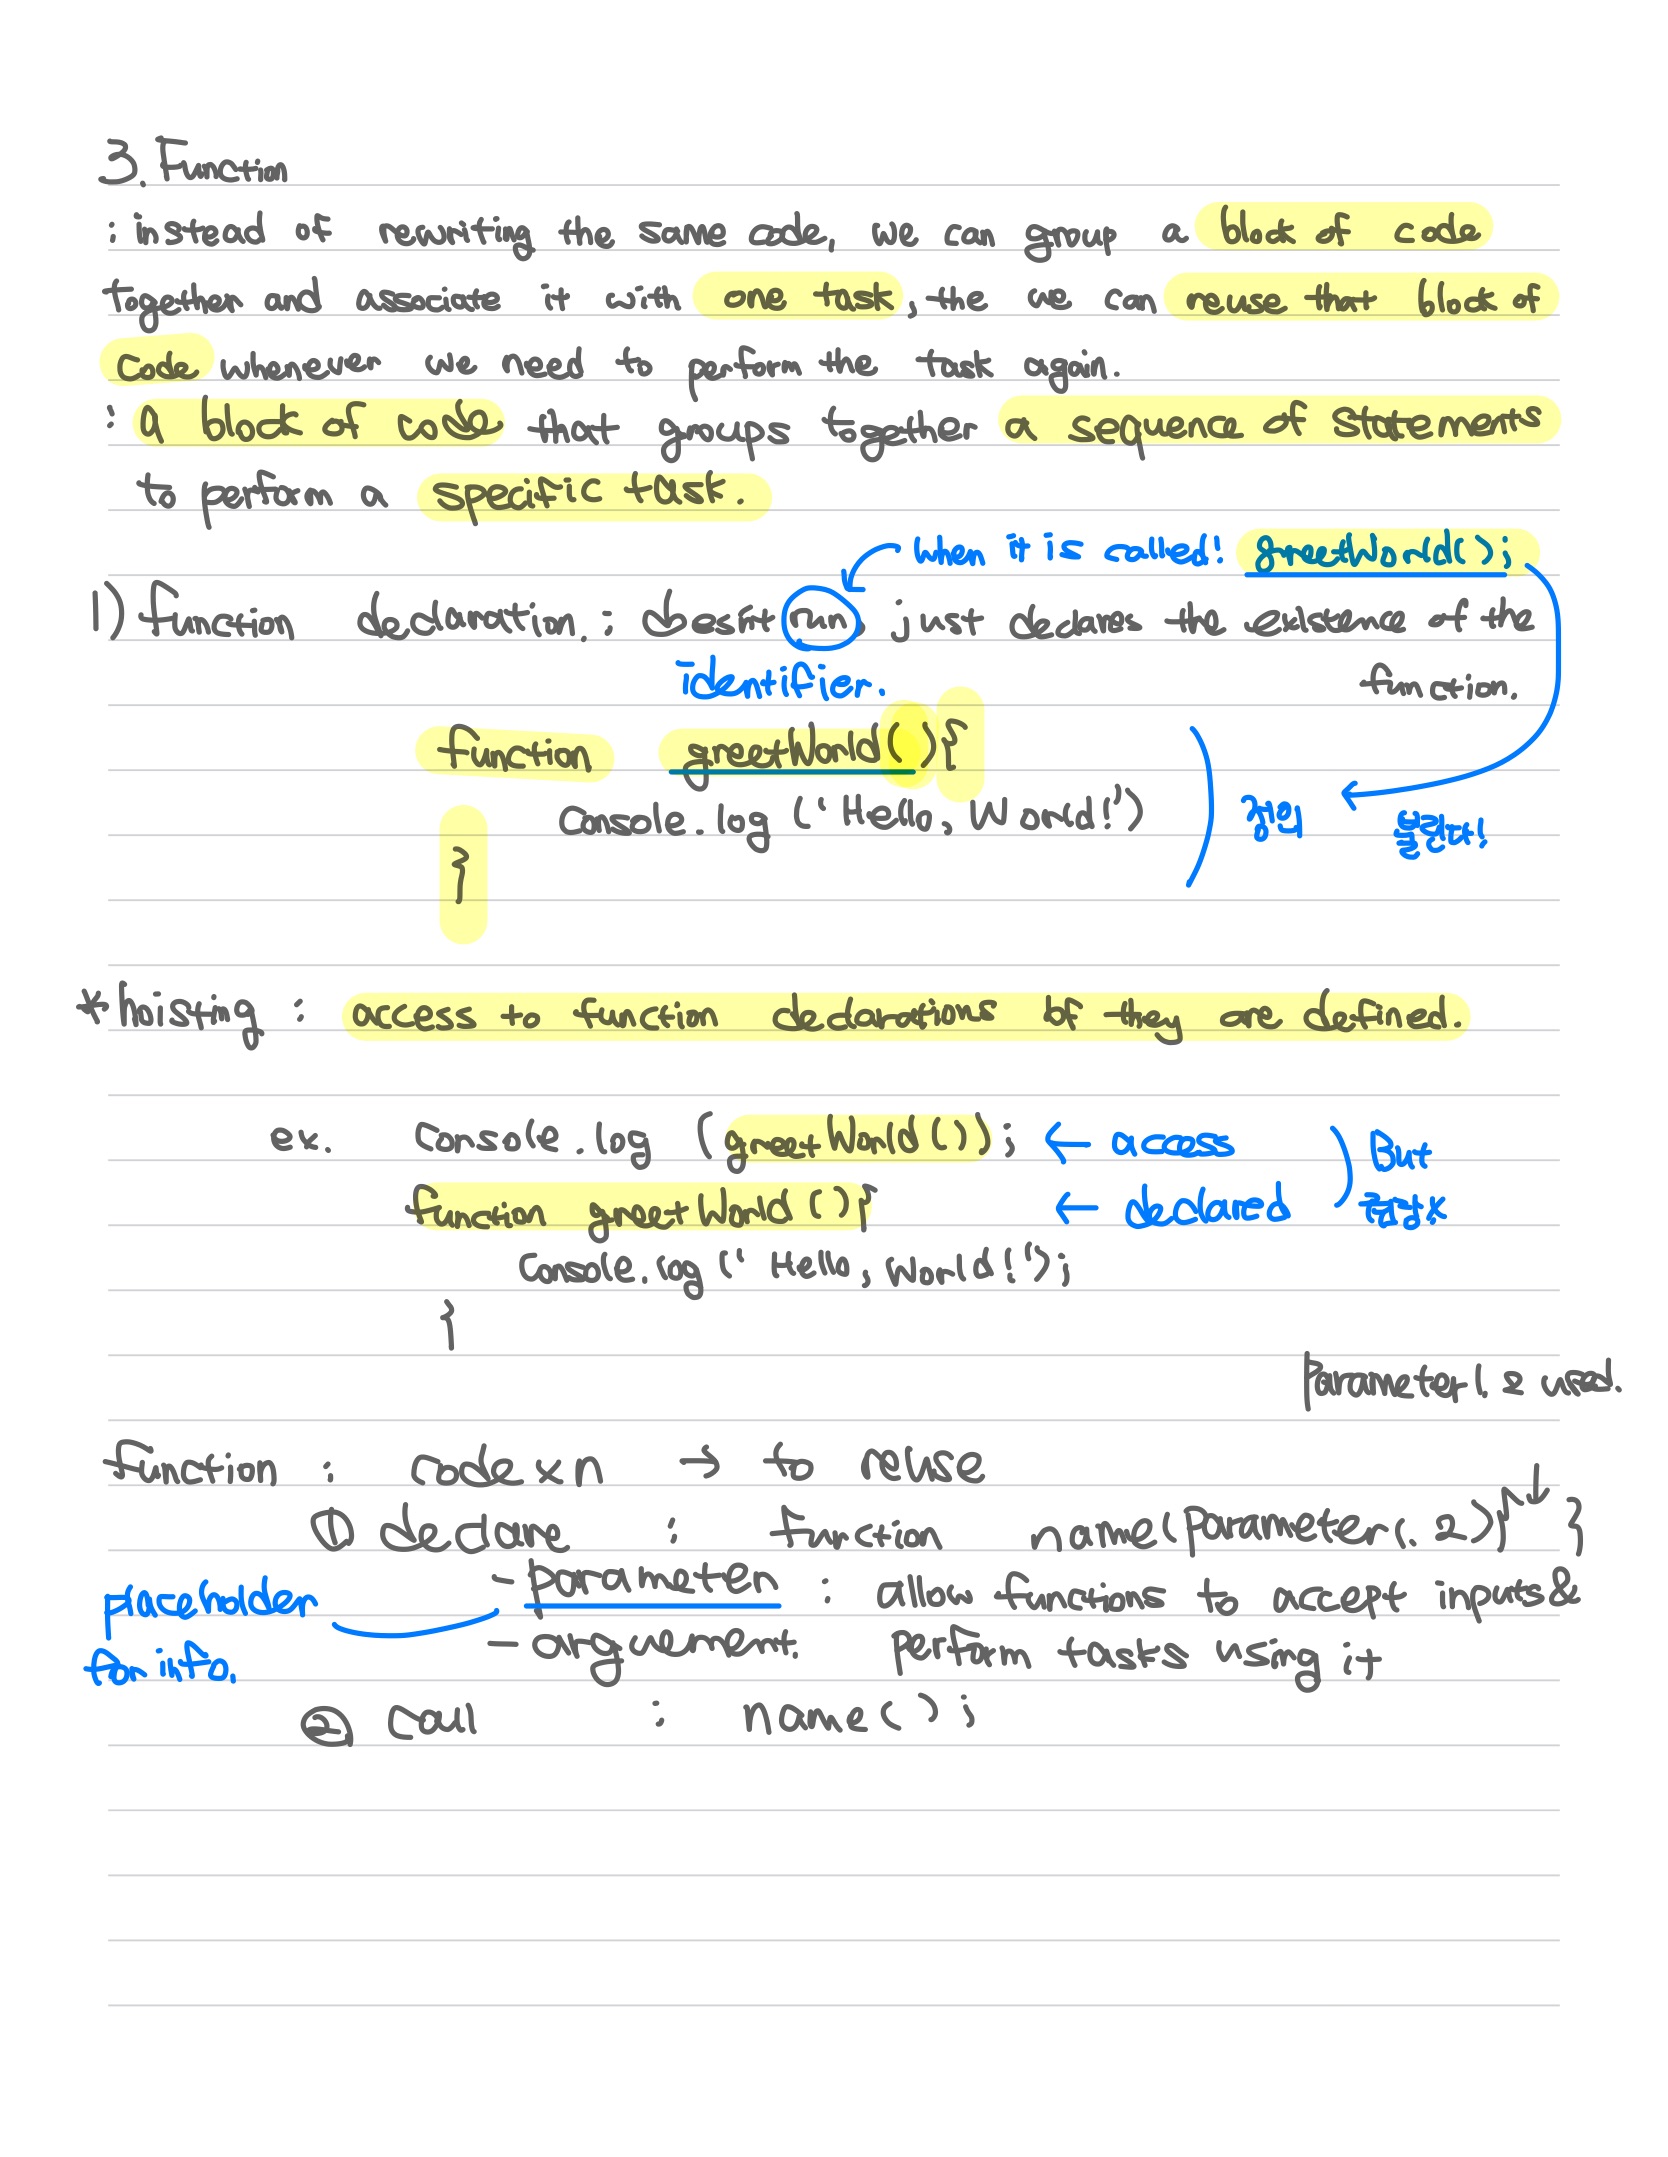 3. Function
: instead of rewriting the same code, we can group a block of code
together and associate it with one task, the we can reuse that block of
code whenever we need to perform the task again.
: a block of code that groups together a sequence of statements
to perform a specific task.
when it is called! greetWorld();
1) function declaration. : doesn't run, just declares the existence of the
identifier. function.
function greetWorld(){
console.log ('Hello, World!')
} 정의 불린다!
*hoisting : access to function declarations bf they are defined.
ex. console.log (greetWorld()); ← access But
function greetWorld(){ ← declared 권장x
console.log (' Hello, World!');
}
parameter1. 2 used.
function : code xn → to reuse
① declare : function name(parameter1. 2){ ↓ }
placeholder - parameter : allow functions to accept inputs &
for info. - arguement. perform tasks using it
② call : name();